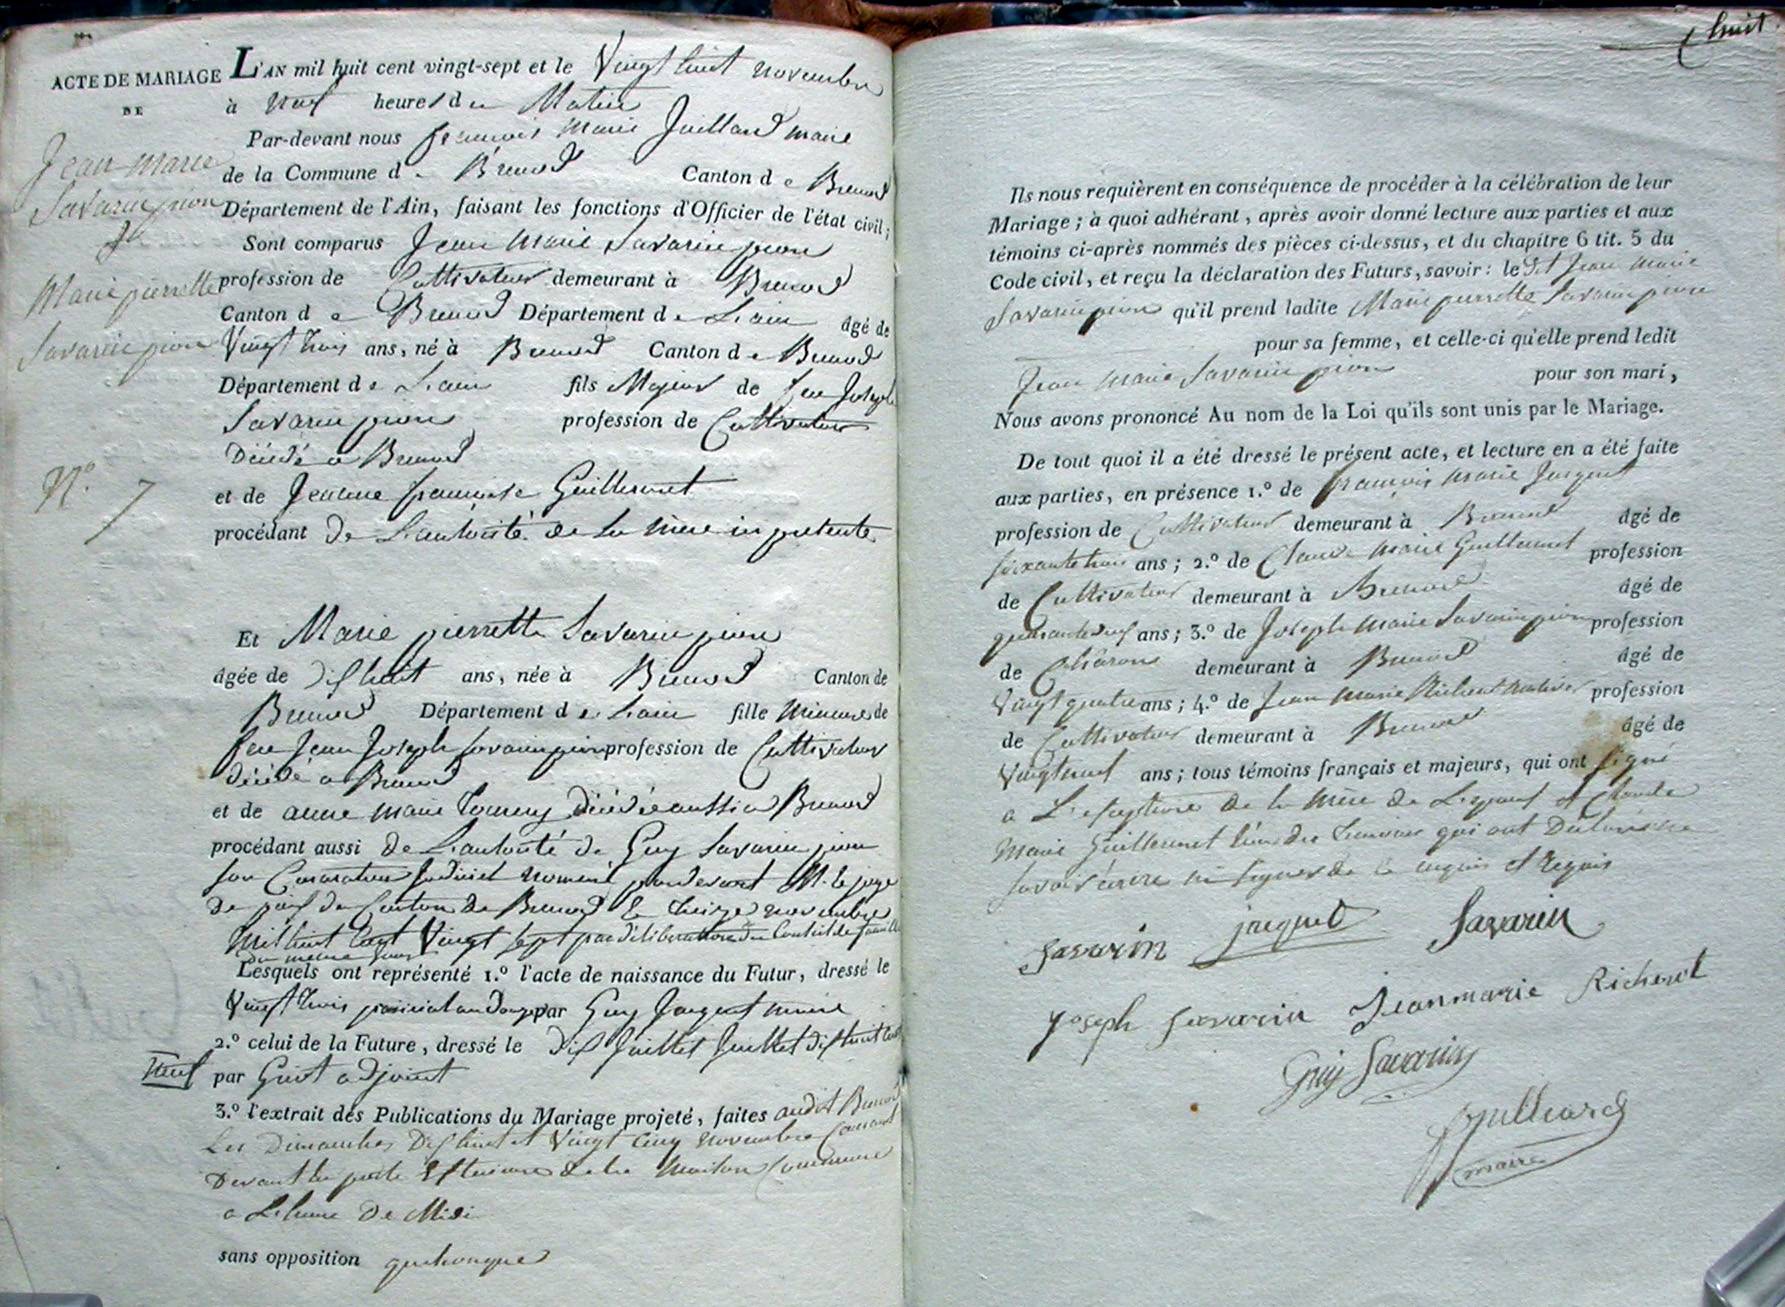 ACTE DE MARIAGE
DE
Jean marie
Savarin pion
&
Marie pierrette
Savarin pion
N.° 7
L'AN mil huit cent vingt-sept et le Vingt huit novembre
à neuf heures du Matin
Par-devant nous françois Marie Juillard maire
de la Commune de Brenod Canton de Brenod
Département de l'Ain, faisant les fonctions d'Officier de l'état civil;
Sont comparus Jean Marie Savarin pion
profession de Cultivateur demeurant à Brenod
Canton de Brenod Département de L'ain âgé de
Vingt trois ans, né à Brenod Canton de Brenod
Département de L'ain fils Majeur de feu Joseph
Savarin pion profession de Cultivateur
Décédé a Brenod
et de Jeanne françoise Guillermet
procédant de L'autorité de Sa Mère ici présente
Et Marie pierrette Savarin pion
âgée de dix huit ans, née à Brenod Canton de
Brenod Département de L'ain fille Mineure de
feu Jean Joseph Savarin pion profession de Cultivateur
décédé a Brenod
et de anne marie décédée aussi a Brenod
procédant aussi de L'autorité de Guy Savarin pion
Son Curateur nommé pardevant M. le juge
de paix du Canton de Brenod le treize novembre
Mil huit Cent Vingt Sept par délibération du Conseil de famille
du meme jour
Lesquels ont représenté 1.° l'acte de naissance du Futur, dressé le
Vingt trois par Guy Jargent maire
2.° celui de la Future, dressé le dix Juillet Juillet dix huit cent
neuf
par adjoint
3.° l'extrait des Publications du Mariage projeté, faites audit Brenod
Les Dimanches Dix huit et Vingt Cinq novembre Courant
Devant la porte Extérieure de la Maison Commune
a L'heure de Midi
sans opposition quelconque
huit
Ils nous requièrent en conséquence de procéder à la célébration de leur
Mariage; à quoi adhérant, après avoir donné lecture aux parties et aux
témoins ci-après nommés des pièces ci-dessus, et du chapitre 6 tit. 5 du
Code civil, et reçu la déclaration des Futurs, savoir: ledit Jean Marie
Savarin pion qu'il prend ladite Marie pierrette Savarin pion
pour sa femme, et celle-ci qu'elle prend ledit
Jean Marie Savarin pion pour son mari,
Nous avons prononcé Au nom de la Loi qu'ils sont unis par le Mariage.
De tout quoi il a été dressé le présent acte, et lecture en a été faite
aux parties, en présence 1.° de françois Marie Jargent
profession de Cultivateur demeurant à Brenod âgé de
soixante trois ans; 2.° de Claude Marie Guillermet profession
de Cultivateur demeurant à Brenod âgé de
quarante neuf ans; 3.° de Joseph Marie Savarin pion profession
de Charon demeurant à Brenod âgé de
Vingt quatre ans; 4.° de Jean Marie Richerot profession
de Cultivateur demeurant à Brenod âgé de
Vingt neuf ans; tous témoins français et majeurs, qui ont signé
a L'exception de la Mère de L'epoux et Claude
Marie Guillermet L'un des temoins qui ont Déclaré ne
Savoir écrire ni signer de ce enquis et requis
Savarin Savarin
Joseph Savarin Jean marie Richerot
Guy Savarin
Juilliard
maire